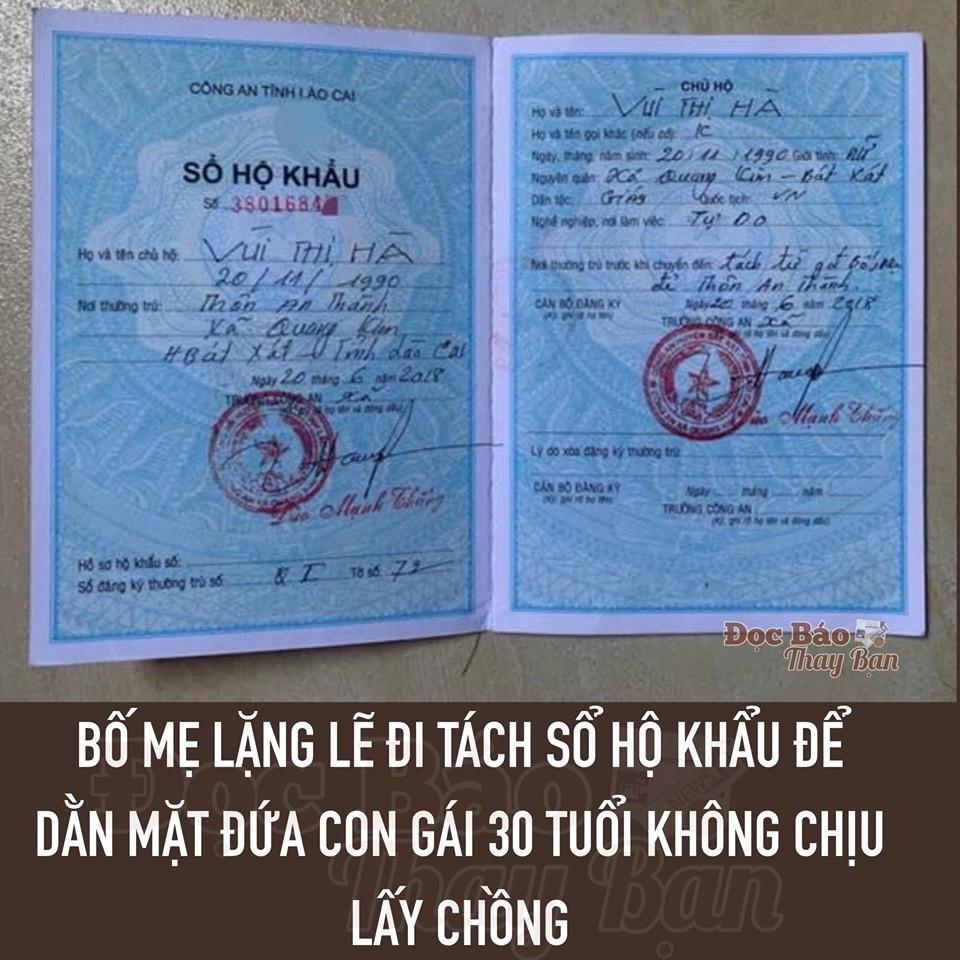 CÔNG AN TỈNH LÀO CAI
SỔ HỘ KHẨU
Số 3801684
Họ và tên chủ hộ: VÙI THỊ HÀ
20/11/1990
Nơi thường trú: Thôn An Thành
Xã Quang Kim
H Bát Xát - Tỉnh Lào Cai
Ngày 20 tháng 6 năm 2018
TRƯỞNG CÔNG AN xã
(Ký, ghi rõ họ tên và đóng dấu)
Đào Mạnh Thắng
Hồ sơ hộ khẩu số:
Sổ đăng ký thường trú số: I Tờ số: 72
CHỦ HỘ
Họ và tên: VÙI THỊ HÀ
Họ và tên gọi khác (nếu có): K
Ngày, tháng, năm sinh: 20/11/1990 Giới tính: Nữ
Nguyên quán: Xã Quang Kim - Bát Xát
Dân tộc: Giáy Quốc tịch: VN
Nghề nghiệp, nơi làm việc: Tự DO
Nơi thường trú trước khi chuyển đến: tách từ
Thôn An Thành.
CÁN BỘ ĐĂNG KÝ Ngày 20 tháng 6 năm 2018
(Ký, ghi rõ họ tên) TRƯỞNG CÔNG AN xã
Đào Mạnh Thắng
Lý do xóa đăng ký thường trú:
CÁN BỘ ĐĂNG KÝ Ngày tháng năm
(Ký, ghi rõ họ tên) TRƯỞNG CÔNG AN:
(Ký, ghi rõ họ tên và đóng dấu)
Đọc Báo
Thay Bạn
BỐ MẸ LẶNG LẼ ĐI TÁCH SỔ HỘ KHẨU ĐỂ
DẰN MẶT ĐỨA CON GÁI 30 TUỔI KHÔNG CHỊU
LẤY CHỒNG